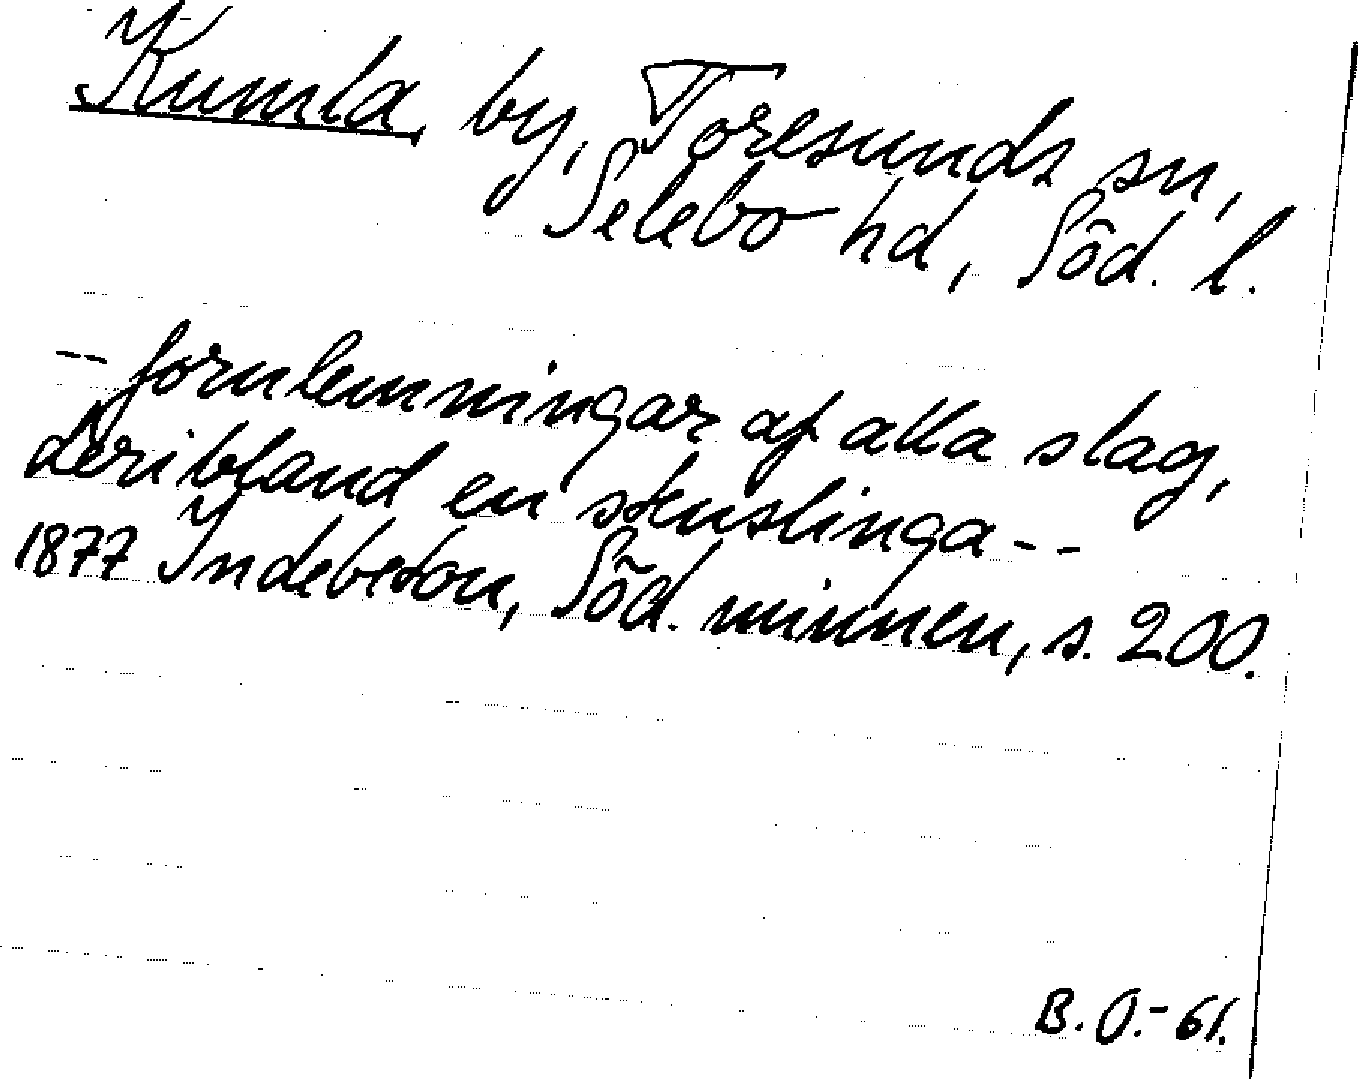 Kumla by, Toresunds sn,
Selebo hd, Söd. l.
-- fornlemningar af alla slag,
deribland en stenslinga --
1877 Indebetou, Söd. minnen, s. 200.
B. O. - 61.